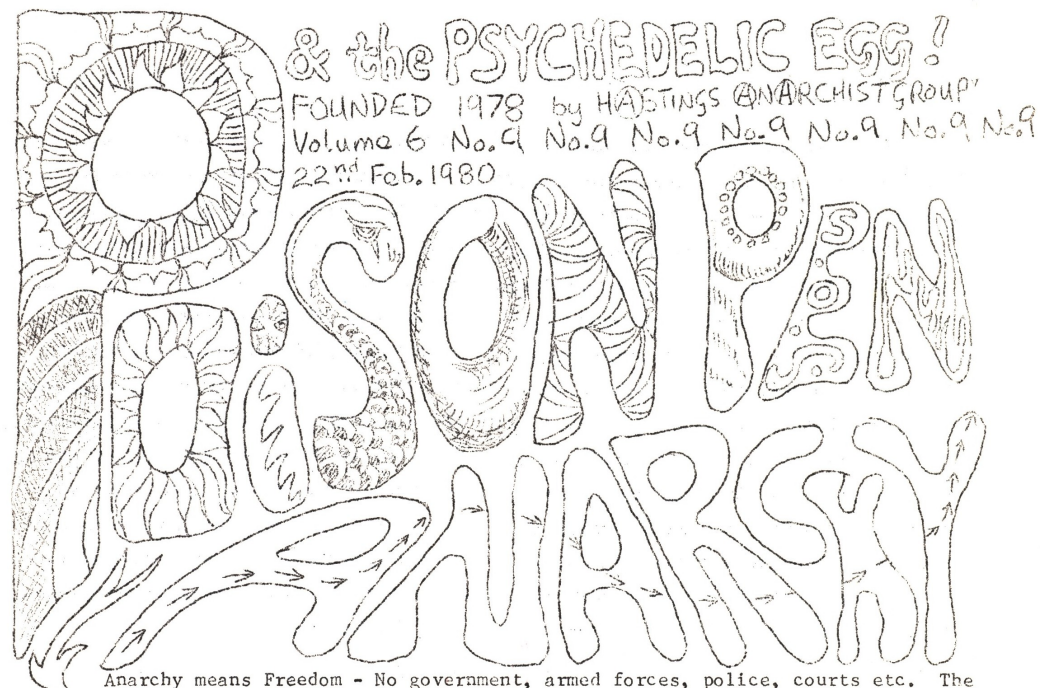 & the PSYCHEDELIC EGG!
FOUNDED 1978 by HASTINGS ANARCHIST GROUP'
Volume 6 No.9 No.9 No.9 No.9 No.9 No.9 No.9
22nd Feb. 1980
POiSON PEN
ANARCHY
Anarchy means Freedom - No government, armed forces, police, courts etc. The